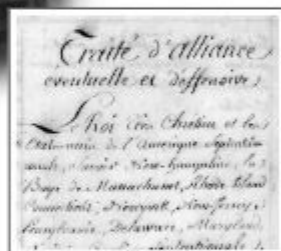 Traité d'alliance
eventuelle et deffensive
Le Roi très Chretien et les
Etats-unis de l'Amerique Septentrio
Baye de Massachuset, Rhode Island
Connecticut, Newyork, New-Jersey,
Pensylvanie, Delaware, Maryland,